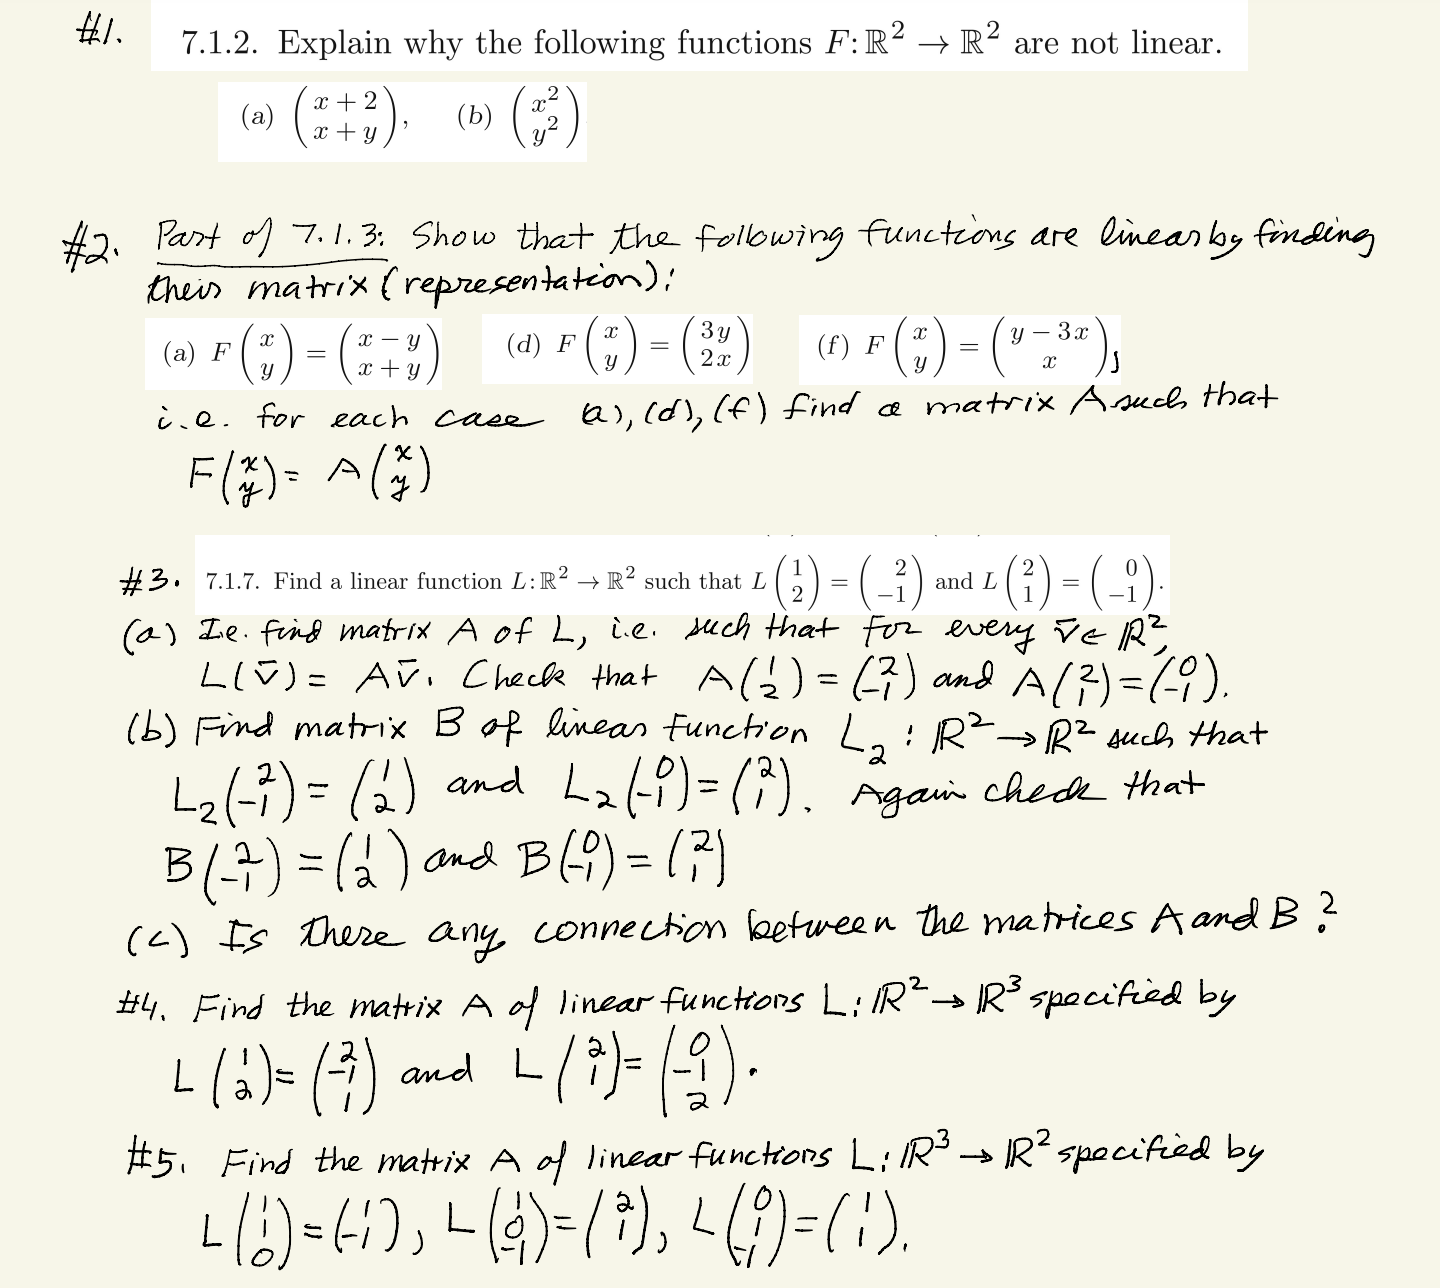 #1. 7.1.2. Explain why the following functions F: ℝ² → ℝ² are not linear.
(a) (x + 2; x + y), (b) (x²; y²)
#2. Part of 7.1.3: Show that the following functions are linear by finding
their matrix (representation):
(a) F(x; y) = (x − y; x + y) (d) F(x; y) = (3y; 2x) (f) F(x; y) = (y − 3x; x),
i.e. for each case (a), (d), (f) find a matrix A such that
F(x; y) = A(x; y)
#3. 7.1.7. Find a linear function L: ℝ² → ℝ² such that L(1; 2) = (2; −1) and L(2; 1) = (0; −1).
(a) I.e. find matrix A of L, i.e. such that for every v̄ ∈ ℝ²,
L(v̄) = Av̄. Check that A(1; 2) = (2; −1) and A(2; 1) = (0; −1).
(b) Find matrix B of linear function L₂ : ℝ² → ℝ² such that
L₂(2; −1) = (1; 2) and L₂(0; −1) = (2; 1). Again check that
B(2; −1) = (1; 2) and B(0; −1) = (2; 1)
(c) Is there any connection between the matrices A and B?
#4. Find the matrix A of linear functions L: ℝ² → ℝ³ specified by
L(1; 2) = (2; −1; 1) and L(2; 1) = (0; −1; 2).
#5. Find the matrix A of linear functions L: ℝ³ → ℝ² specified by
L(1; 1; 0) = (1; −1), L(1; 0; −1) = (2; 1), L(0; 1; −1) = (1; 1).